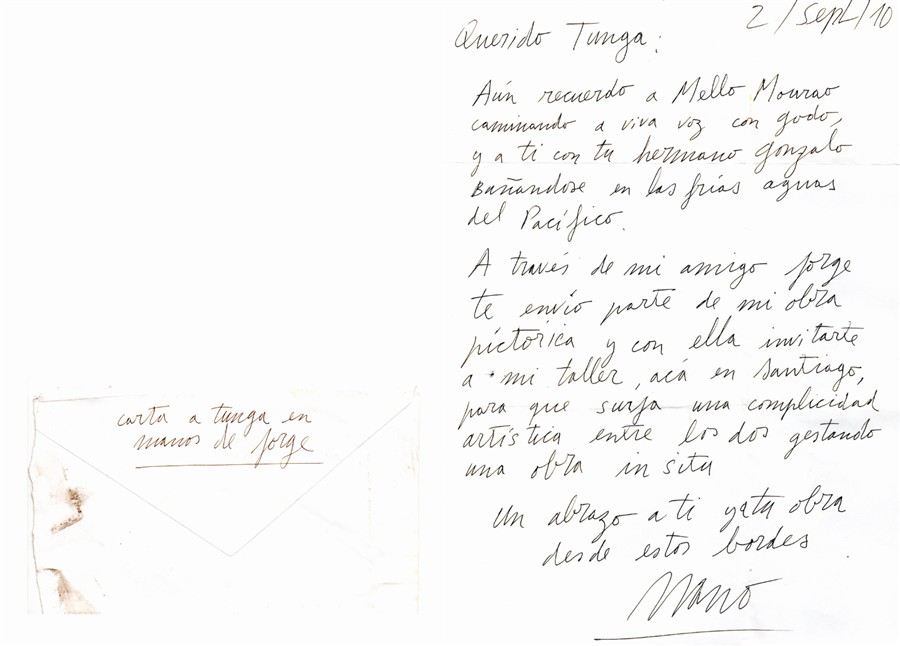 carta a tunga en
manos de Jorge
2/Sept/10
Querido Tunga:
Aún recuerdo a Mello Mourao
caminando a viva voz con godo,
y a ti con tu hermano Gonzalo
Bañandose en las frías aguas
del Pacífico.
A través de mi amigo Jorge
te envío parte de mi obra
pictórica y con ella invitarte
a mi taller, acá en Santiago,
para que surja una complicidad
artística entre los dos gestando
una obra in situ
un abrazo a ti y a tu obra
desde estos bordes.